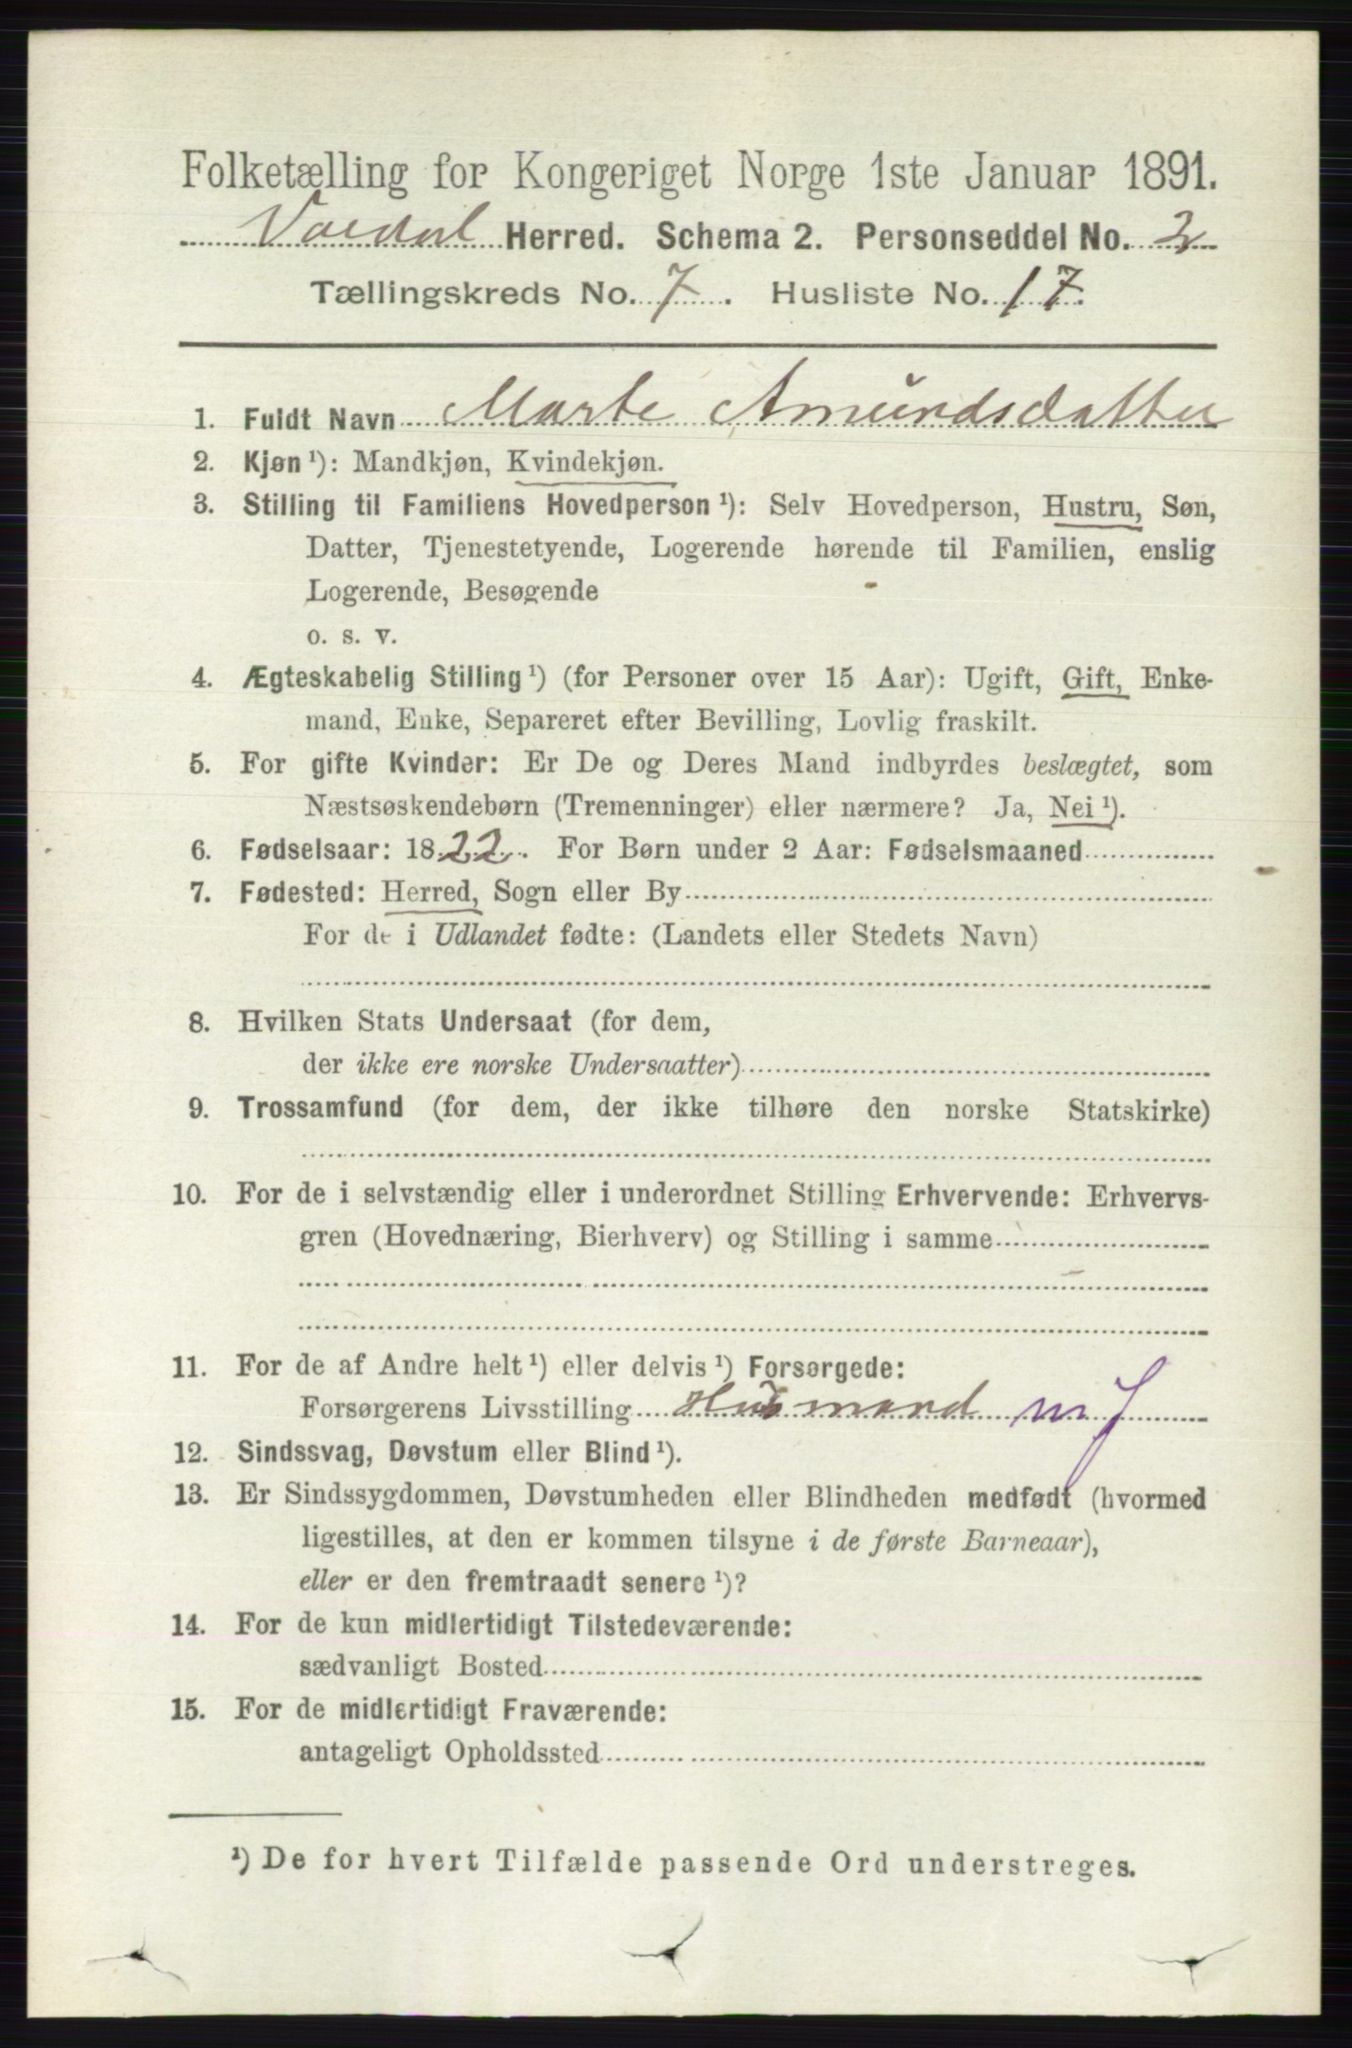 Folketælling for Kongeriget Norge 1ste Januar 1891.
Herred. Schema 2. Personseddel No. 2
Tællingskreds No. 7. Husliste No. 17.
1. Fuldt Navn Marte Amundsdatter
2. Kjøn ¹): Mandkjøn, Kvindekjøn.
3. Stilling til Familiens Hovedperson ¹): Selv Hovedperson, Hustru, Søn,
Datter, Tjenestetyende, Logerende hørende til Familien, enslig
Logerende, Besøgende
o. s. v.
4. Ægteskabelig Stilling ¹) (for Personer over 15 Aar): Ugift, Gift, Enke-
mand, Enke, Separeret efter Bevilling, Lovlig fraskilt.
5. For gifte Kvinder: Er De og Deres Mand indbyrdes beslægtet, som
Næstsøskendebørn (Tremenninger) eller nærmere? Ja, Nei ¹).
6. Fødselsaar: 1822. For Børn under 2 Aar: Fødselsmaaned
7. Fødested: Herred, Sogn eller By
For de i Udlandet fødte: (Landets eller Stedets Navn)
8. Hvilken Stats Undersaat (for dem,
der ikke ere norske Undersaatter)
9. Trossamfund (for dem, der ikke tilhøre den norske Statskirke)
10. For de i selvstændig eller i underordnet Stilling Erhvervende: Erhvervs-
gren (Hovednæring, Bierhverv) og Stilling i samme
11. For de af Andre helt ¹) eller delvis ¹) Forsørgede:
Forsørgerens Livsstilling Husmand m J
12. Sindssvag, Døvstum eller Blind ¹).
13. Er Sindssygdommen, Døvstumheden eller Blindheden medfødt (hvormed
ligestilles, at den er kommen tilsyne i de første Barneaar),
eller er den fremtraadt senere ¹)?
14. For de kun midlertidigt Tilstedeværende:
sædvanligt Bosted
15. For de midlertidigt Fraværende:
antageligt Opholdssted
¹) De for hvert Tilfælde passende Ord understreges.